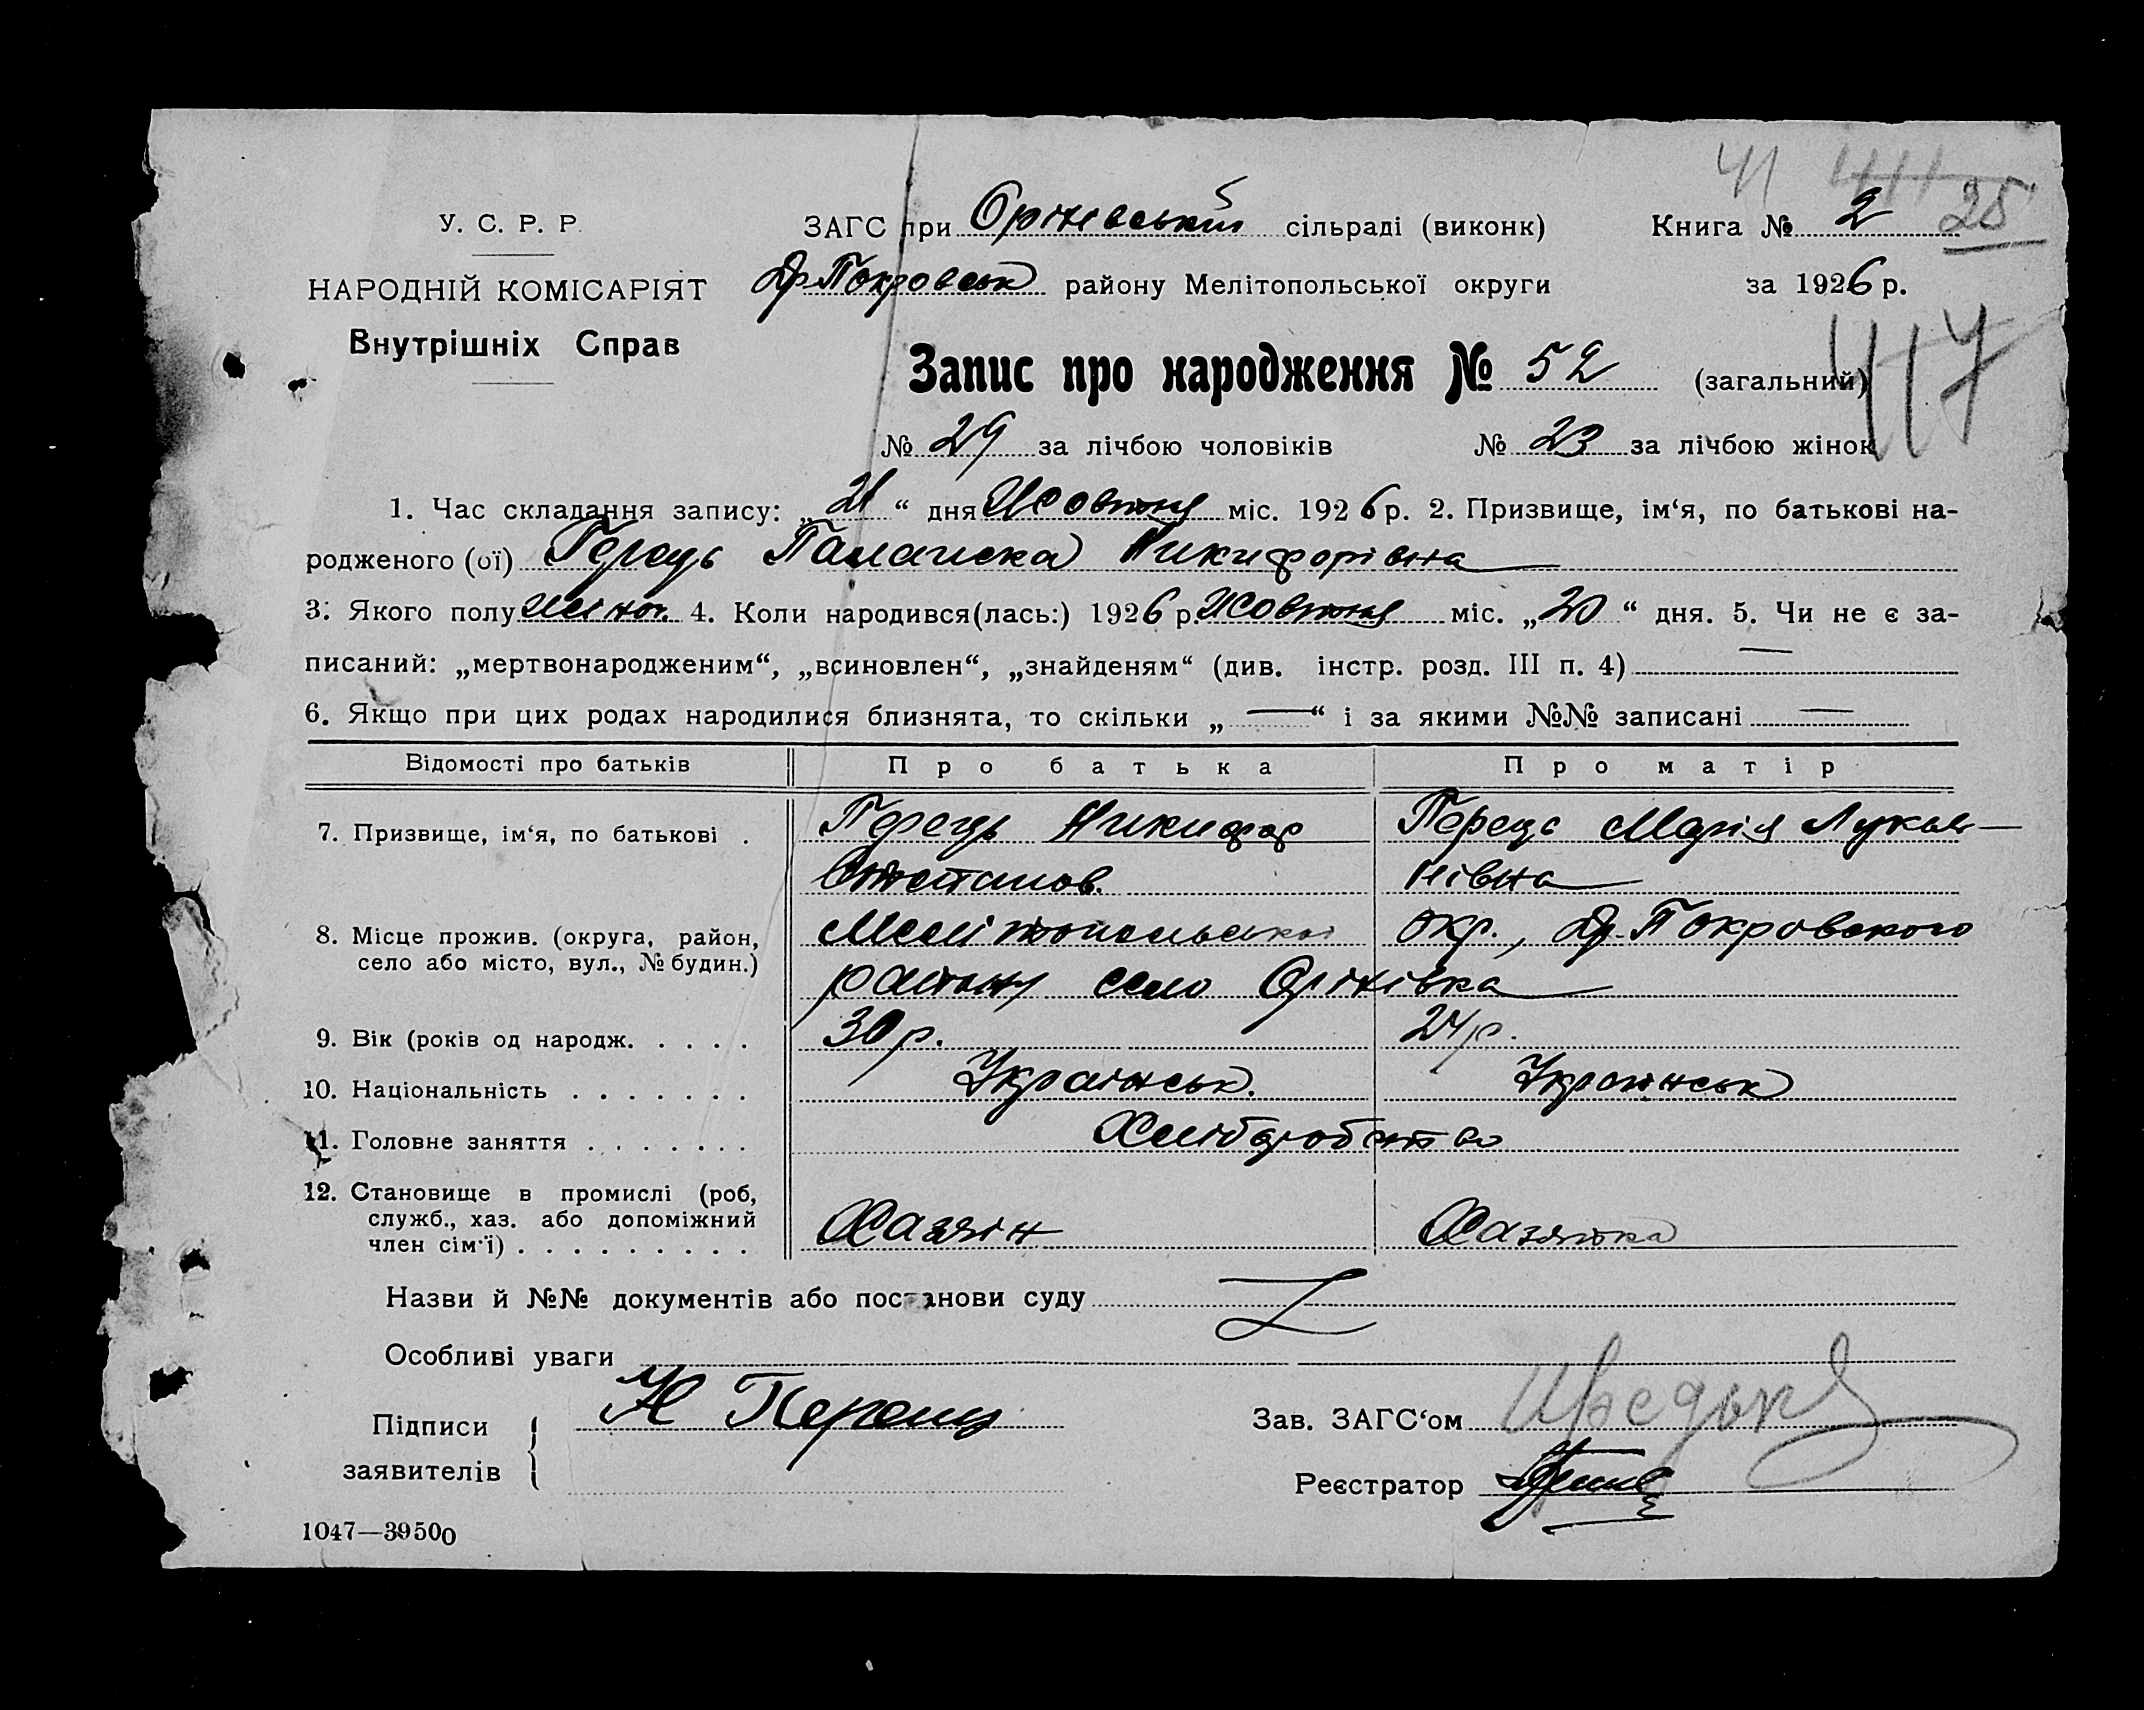 41 411 25
У. С. Р. Р.
ЗАГС при Орінівський сільраді (виконк) Книга № 2
НАРОДНІЙ КОМІСАРІЯТ
Др-Покровськ району Мелітопольської округи за 1926 р.
Внутрішніх Справ
417
Запис про народження № 52 (загальний)
№ 29 за лічбою чоловіків № 23 за лічбою жінок
1. Час складання запису: „21“ дня Жовтня міс. 1926 р. 2. Призвище, ім‘я, по батькові на-
родженого (ої) Перець Палашка Никифорівна
3. Якого полу жіноч. 4. Коли народився(лась:) 1926 р. Жовтня міс. „20“ дня. 5. Чи не є за-
писаний: „мертвонародженим“, „всиновлен“, „знайденям“ (див. інстр. розд. III п. 4) —
6. Якщо при цих родах народилися близнята, то скільки „—“ і за якими №№ записані —
Відомості про батьків Про батька Про матір
7. Призвище, ім‘я, по батькові . Перець Никифор Перець Марія Лукья-
Остапов. нівна
8. Місце прожив. (округа, район, Мелітопольської окр., Др-Покровского
село або місто, вул., № будин.) району село Орінівка
9. Вік (років од народж. . . . . 30 р. 24 р.
10. Національність . . . . . . . Українськ. Українськ
11. Головне заняття . . . . . . . Хліборобство
12. Становище в промислі (роб,
служб., хаз. або допоміжний
член сім‘ї) . . . . . . . . . Хазяїн Хазяйка
Назви й №№ документів або постанови суду
Особливі уваги
Підписи Н Перець
заявителів
Зав. ЗАГС‘ом
Реєстратор
1047—39500